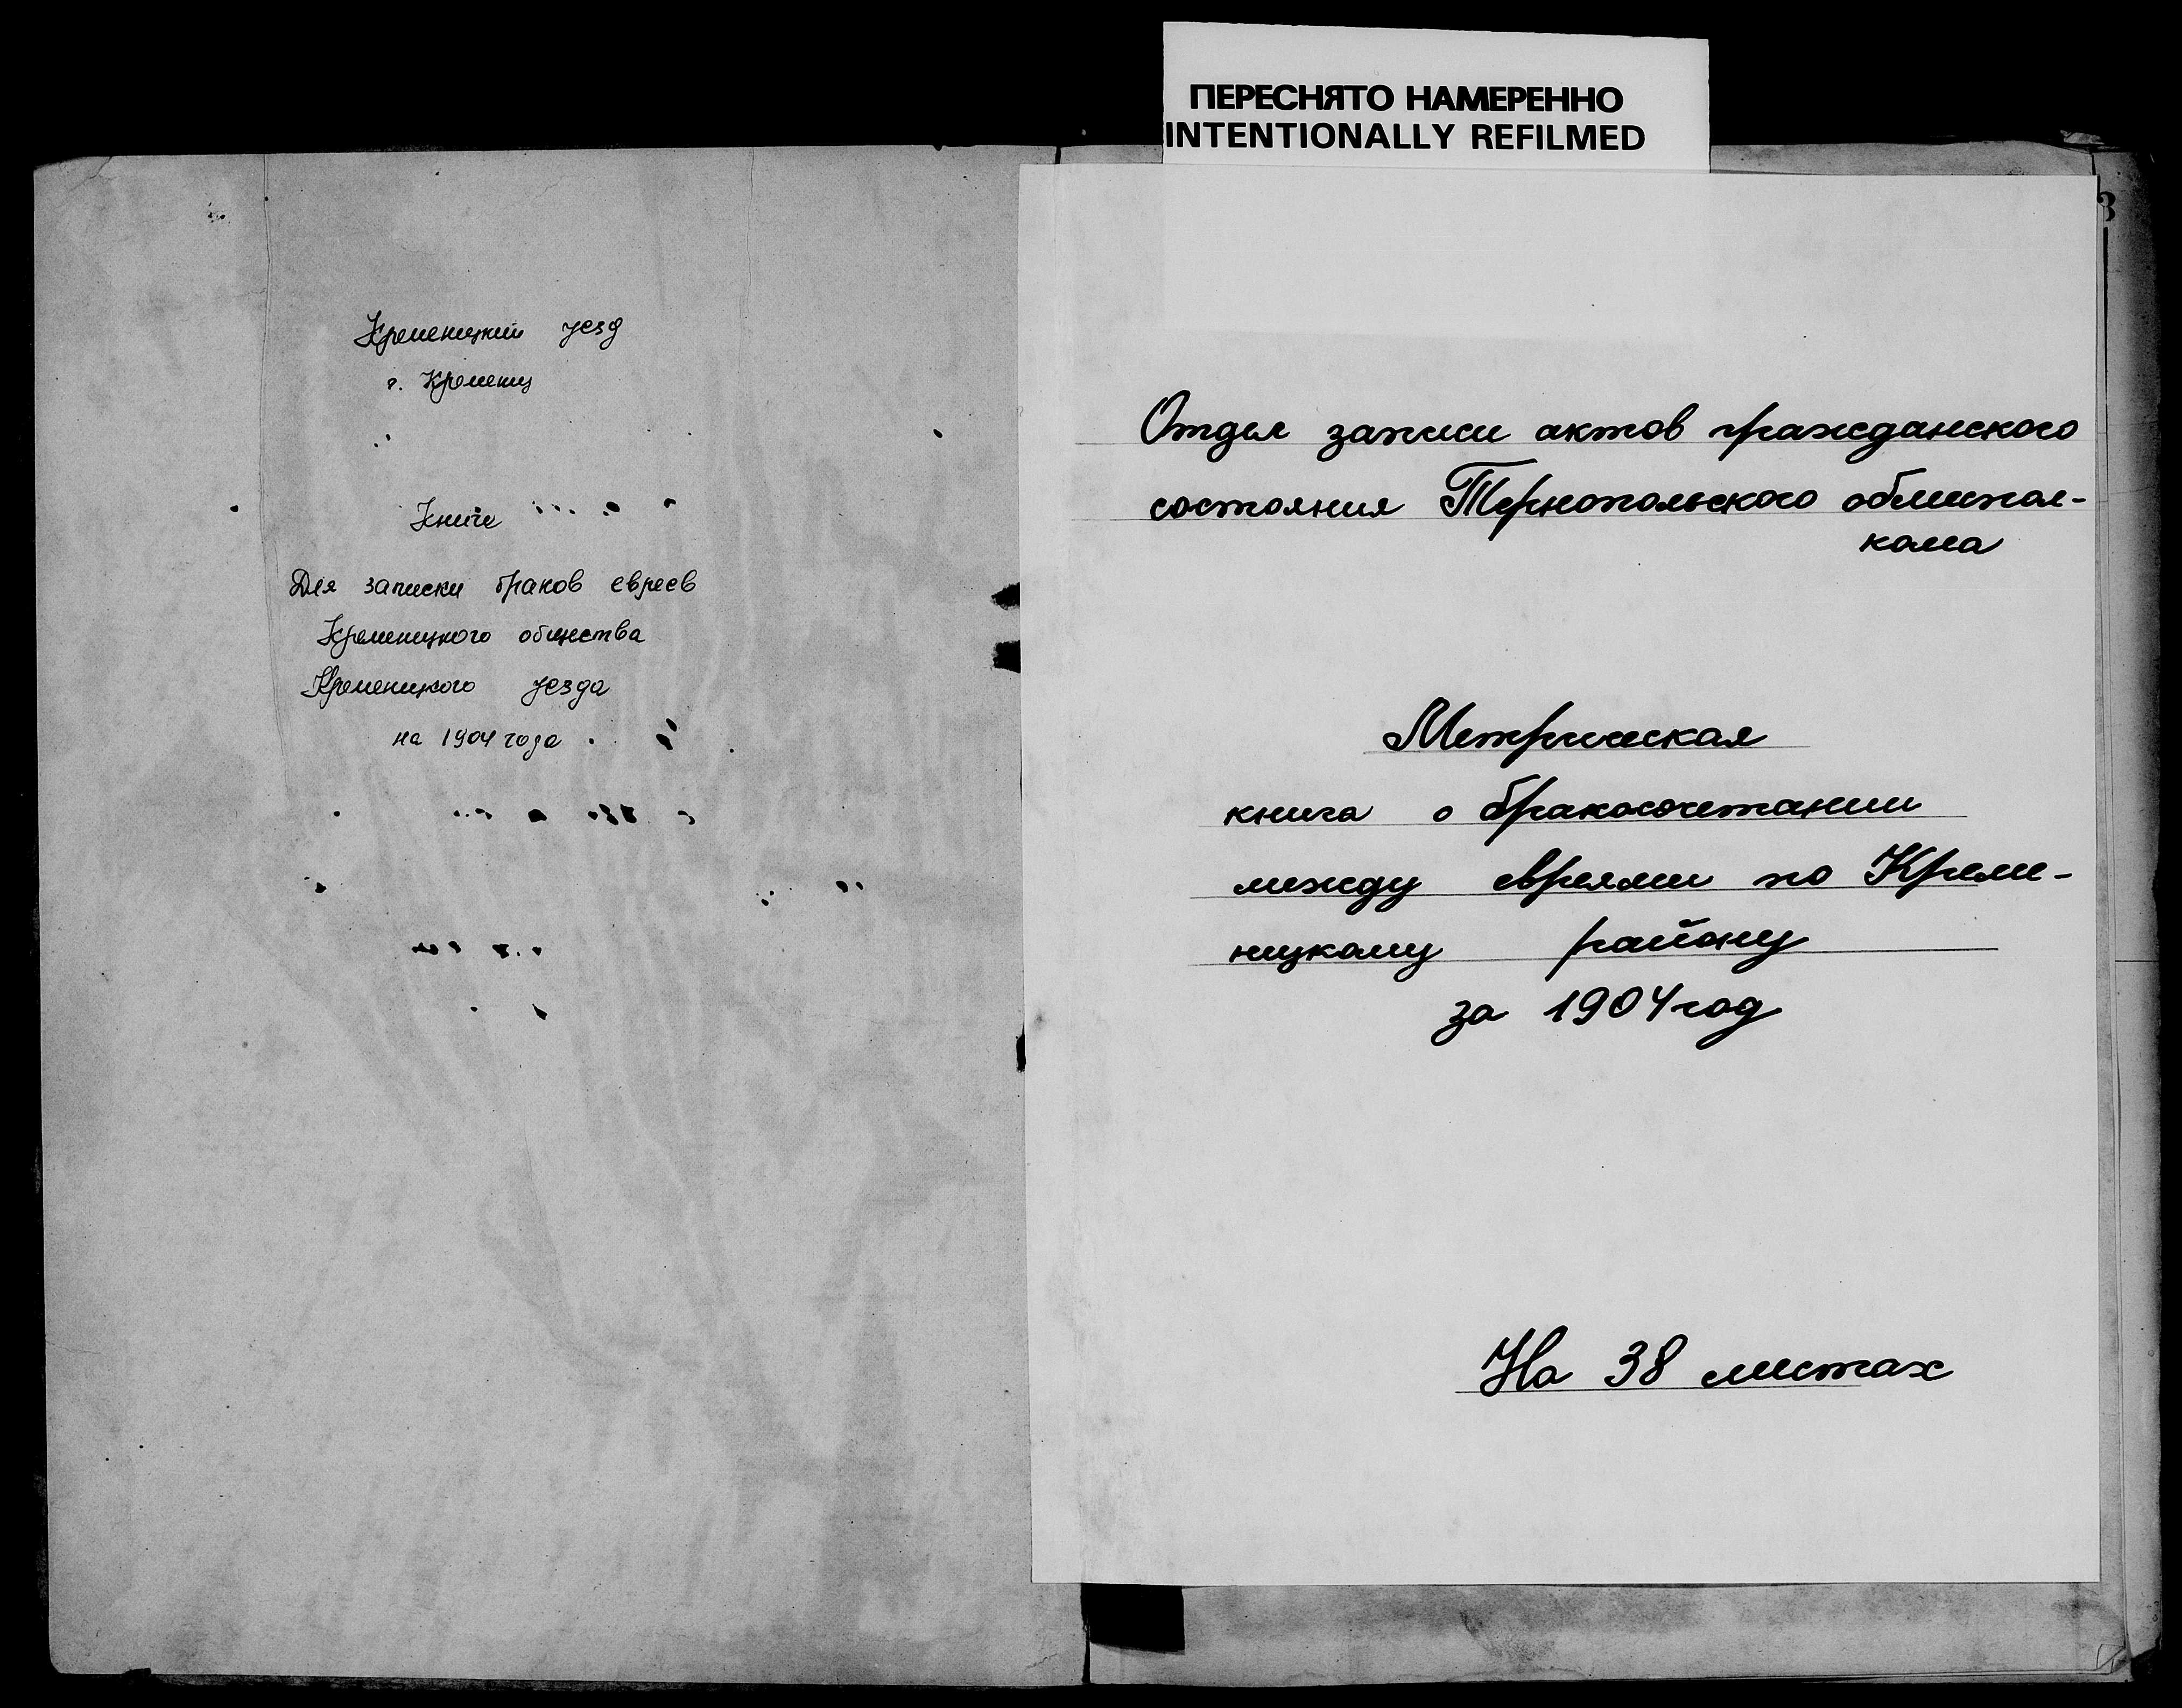 ПЕРЕСНЯТО НАМЕРЕННО
INTENTIONALLY REFILMED
Кременецкий уезд
г. Кременец
Книга
Для записки браков евреев
Кременецкого общества
Кременецкого уезда
на 1904 года
Отдел записи актов гражданского
состояния Тернопольского облиспол-
кома
Метрическая
книга о бракосочетании
между евреями по Креме-
нецкому району
за 1904 год
На 38 листах